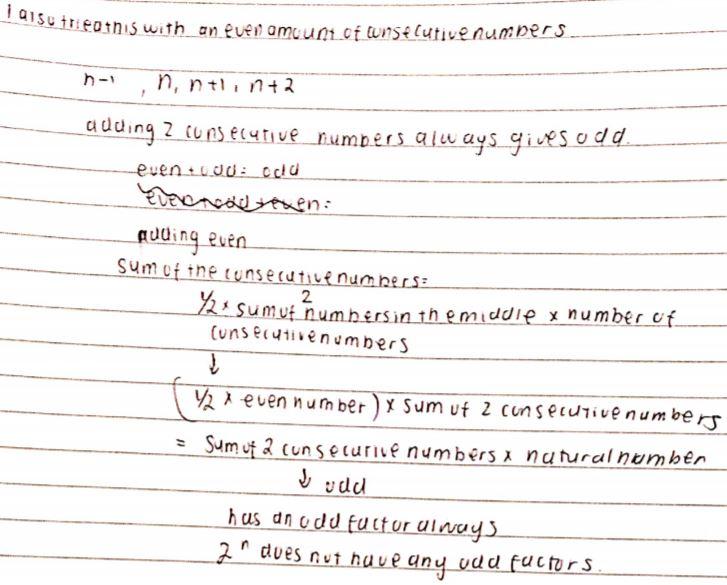 I also tried this with an even amount of consecutive numbers
n-1, n, n+1, n+2
adding 2 consecutive numbers always gives odd.
even + odd = odd
even+odd+even=
adding even
sum of the consecutive numbers=
1/2 × sum of 2 numbers in the middle × number of
consecutive numbers
↓
(1/2 × even number) × sum of 2 consecutive numbers
= sum of 2 consecutive numbers × natural number
↓ odd
has an odd factor always
2ⁿ does not have any odd factors.